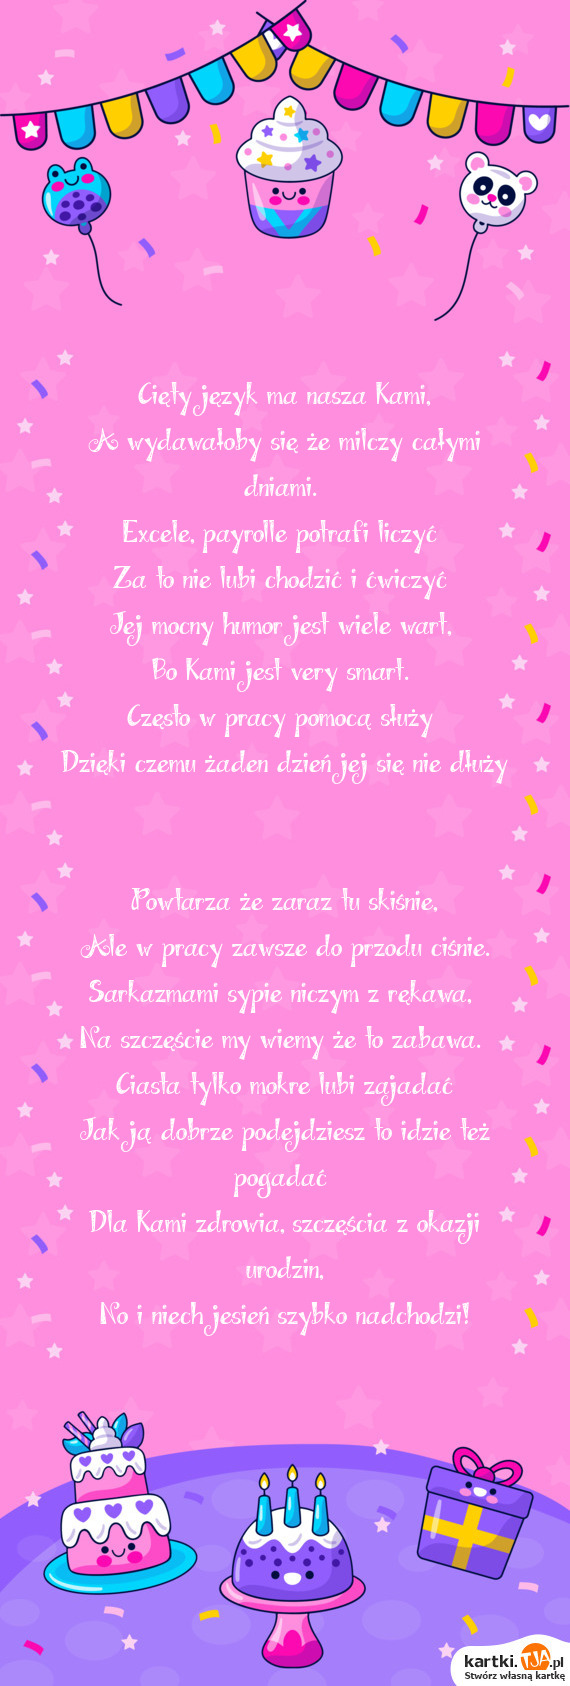 Cięty język ma nasza Kami,
A wydawałoby się że milczy całymi
dniami.
Excele, payrolle potrafi liczyć
Za to nie lubi chodzić i ćwiczyć
Jej mocny humor jest wiele wart,
Bo Kami jest very smart.
Często w pracy pomocą służy
Dzięki czemu żaden dzień jej się nie dłuży
Powtarza że zaraz tu skiśnie,
Ale w pracy zawsze do przodu ciśnie.
Sarkazmami sypie niczym z rękawa,
Na szczęście my wiemy że to zabawa.
Ciasta tylko mokre lubi zajadać
Jak ją dobrze podejdziesz to idzie też
pogadać
Dla Kami zdrowia, szczęścia z okazji
urodzin,
No i niech jesień szybko nadchodzi!
kartki.TJA.pl
Stwórz własną kartkę